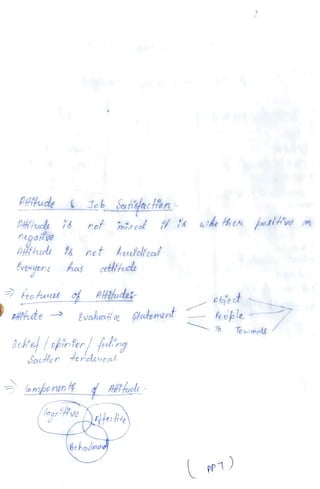 Attitude & Job Satisfaction :-
Attitude is not mixed it is whether positive or
negative
Attitude is not heridical
Everyone has attitude
⇒ Features of Attitude:-
Attitute → Evaluative Statement
Object
People
Th Towards
Belief / opinion / filing
⇒ Components of Attitude :-
Cognitive
Affective
Behavioural
( PPT )